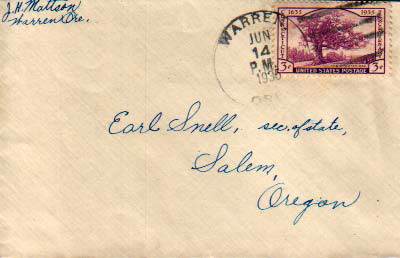 J.H. Mattson
Warren Ore.
WARREN
JUN
14
P.M.
193
ORE
1635 1935
CONNECTICUT
UNITED STATES POSTAGE
3¢ 3¢
Earl Snell, sec. of state,
Salem,
Oregon